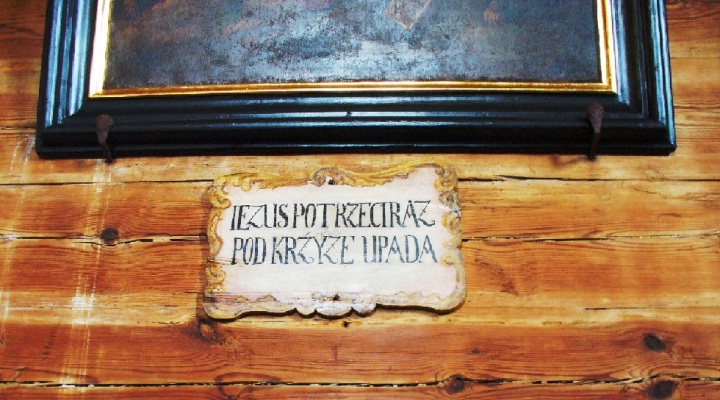 IEZUS POTRZECI RAZ
POD KRZYZE UPADA